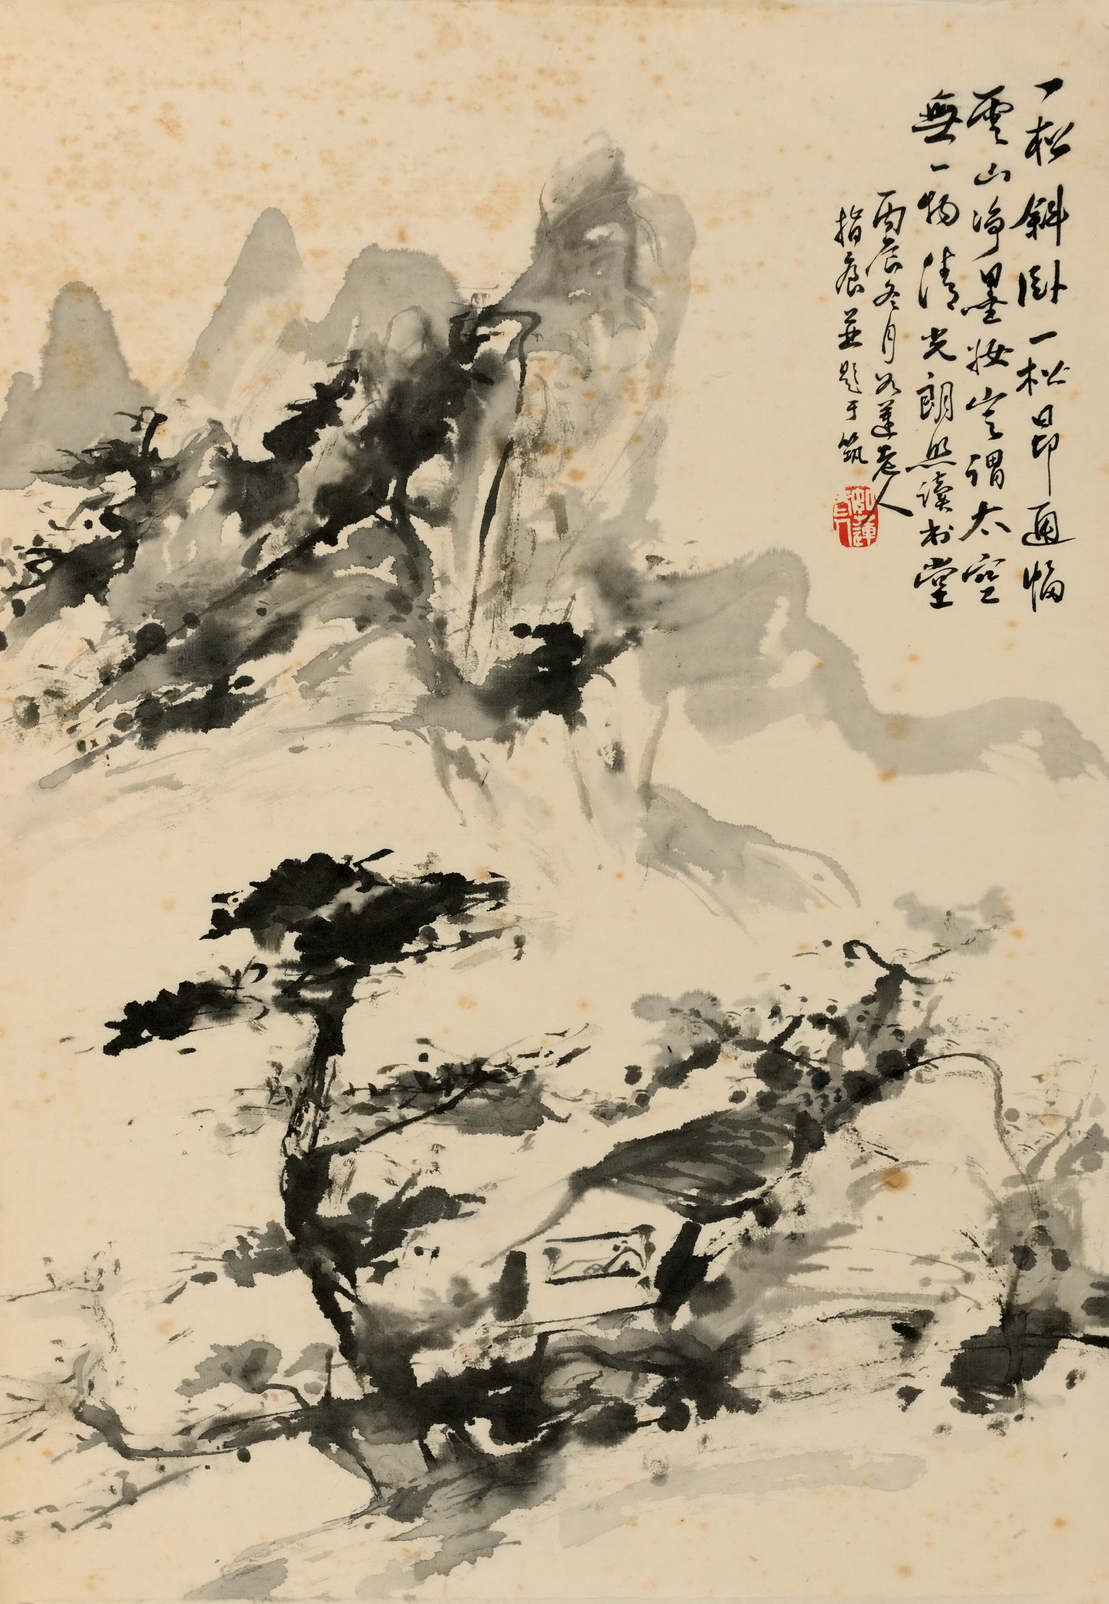 一松斜卧一松昂画幅
雲山净墨妆岂谓太空
無一物清光朗照读书堂
丙辰冬月泌莲老人
指痕并题于筑